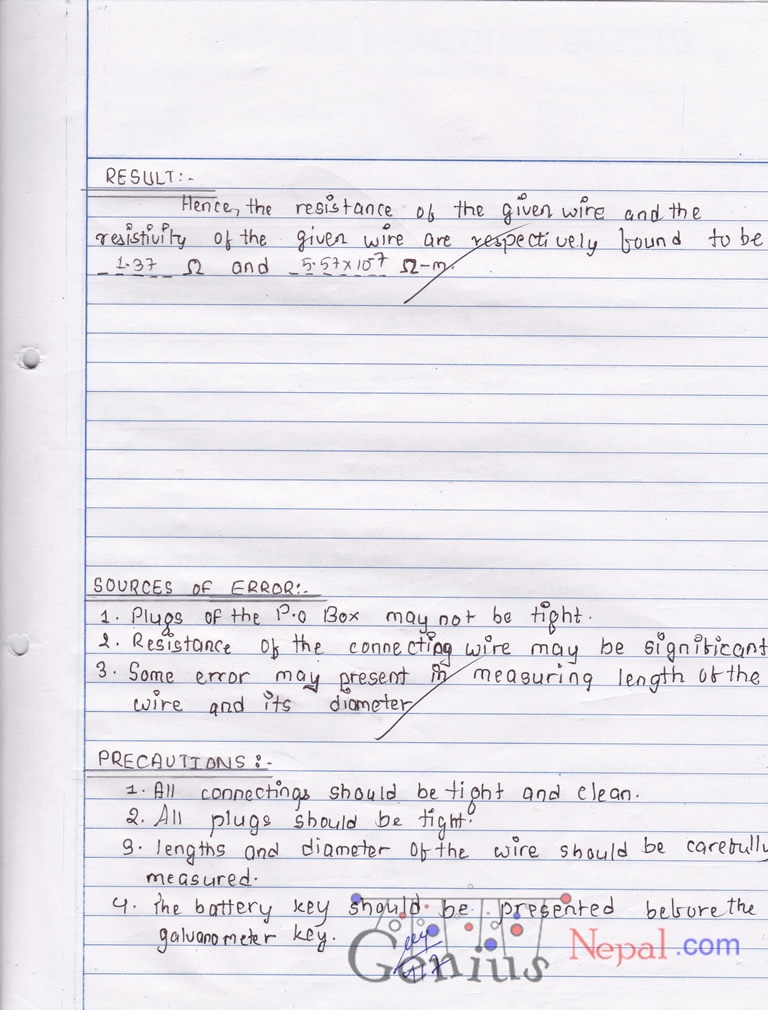 RESULT:-
Hence, the resistance of the given wire and the
resistivity of the given wire are respectively found to be
1.37 Ω and 5.57x10⁷ Ω-m.
SOURCES OF ERROR:-
1. Plugs of the P.O Box may not be tight.
2. Resistance of the connecting wire may be significant
3. Some error may present in measuring length of the
wire and its diameter
PRECAUTIONS:-
1. All connectings should be tight and clean.
2. All plugs should be tight.
3. lengths and diameter of the wire should be carefully
measured.
4. The battery key should be presented before the
galvanometer key.
Genius Nepal.com